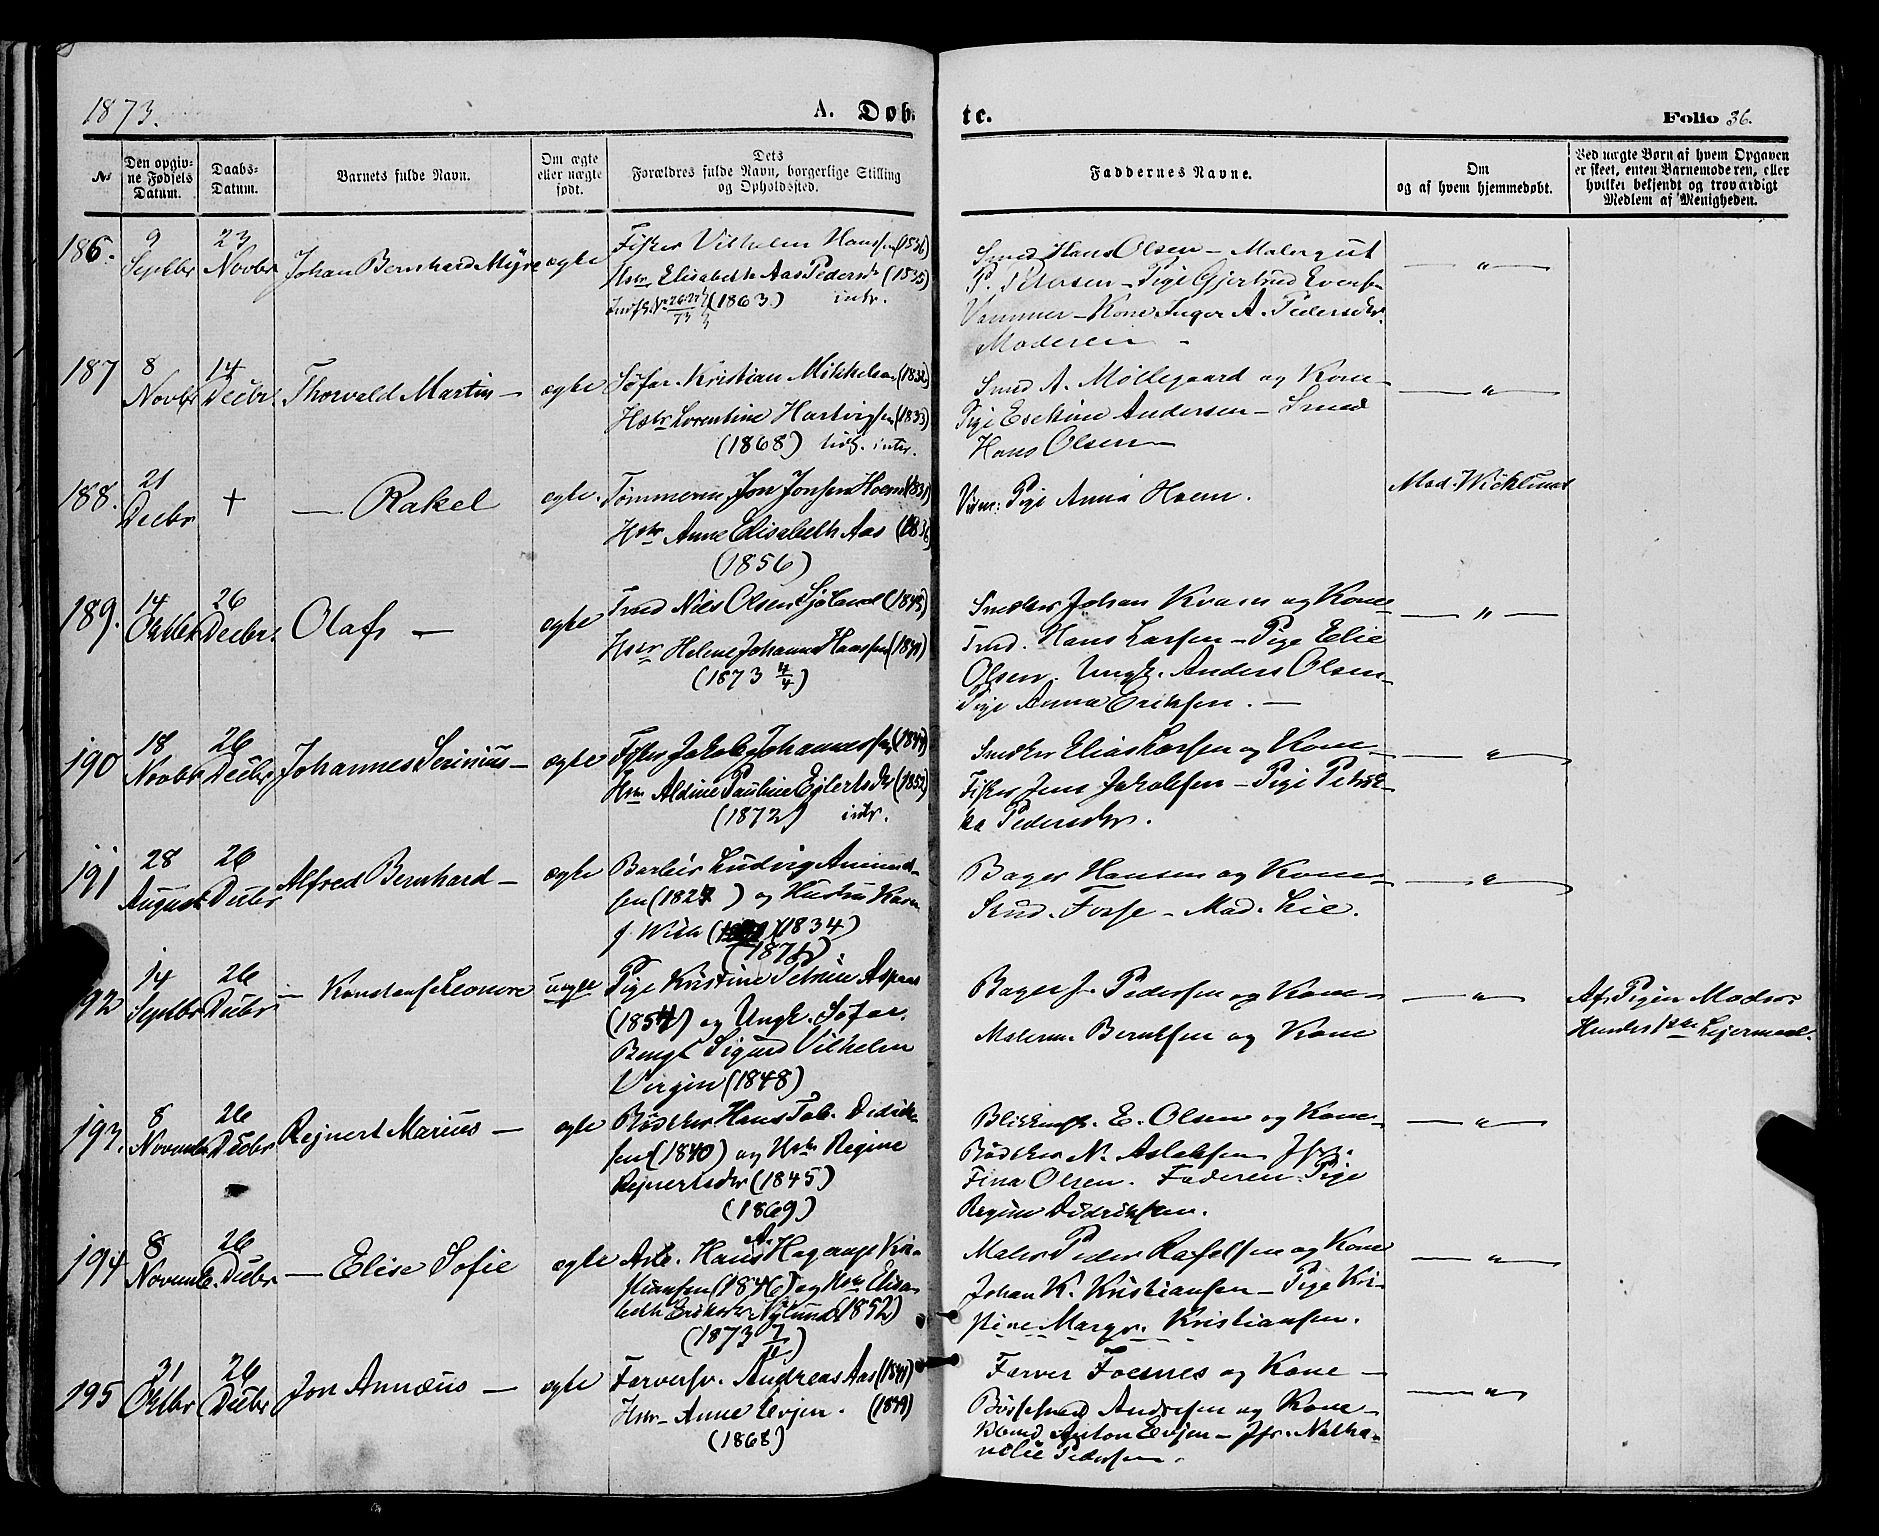 1873.
A. Døb-
te.
Folio 36.
№
Den opgiv-
ne Fødsels
Datum.
Daabs-
Datum.
Barnets fulde Navn.
Om ægte
eller uægte
født.
Dets
Forældres fulde Navn, borgerlige Stilling
og Opholdssted.
Faddernes Navne.
Om
og af hvem hjemmedøbt.
Ved uægte Børn af hvem Opgaven
er skeet, enten Barnemoderen, eller
hvilket bekjendt og troværdigt
Medlem af Menigheden.
186. 9 Septbr 23 Novbr Johan Bernhard Myre ægte
Fisker Vilhelm Hansen (1836)
Hstr Elisabeth Aas Pedersdr (1835)
(1863) intr.
Smed Hans Olsen – Malergut
P. Petersen – Pige Gjertrud Evensen
Kone Inger A. Pedersdr.
Moderen –
187 8 Novbr 14 Decbr. Thorvald Martin – ægte
Søfar. Kristian Mikkelsen (1832)
Hstr Lorentine Hartvigsen (1833)
(1868) intr.
Smed A. Møllegaard og Kone –
Pige Andersen – Smed
Hans Olsen –
– " –
188. 21 Decbr + – Rakel ægte.
Tømmerm. Jon Jonsen Hoem
Hstr Anne Elisabeth Aas (1836)
(1856)
Pige Anna Hoem.
Mad. Wicklund
189. 14 Oktbr 26 Decbr. Olaf – ægte
Tmd Niels Olsen Sjølund (1845)
Hstr Helene Johanna Hansen (1849)
(1873 4/4)
Snedker Johan Kvam og Kone –
Tmd. Hans Larsen – Pige Elie
Olsen. Ungk. Anders Olsen –
Pige Anna Eriksen. –
– " –
190 18 Novbr 26 Decbr Johannes Serinius – ægte
Fisker Jakob Johannessen (1849)
Hstr Aldine Pauline Eglertsdr (1852)
(1872) intr.
Snedker Elias Larsen og Kone –
Fisker Jens Jakobsen – Pige Petrik-
ka Pedersdr.
– " –
191 28 August 26 Decbr Alfred Bernhard – ægte
Barber Ludvig Amund-
sen (1827) og Hustru Karen
f. Wiik (1834)
(1871)
Bager Hansen og Kone –
Stud. Fosse – Mad. Lie.
– " –
192 14 Septbr 26 Decbr – Konstanse Leonore uægte
Pige Kristine Petrine Aspaas
(1854) og Ungk. Søfar.
Bengt Sigurd Vilhelm
Virgin (1848)
Bager J. Pedersen og Kone –
Malerm. Berntsen og Kone
– " –
Af Pigens Moder
Hendes 1ste Lejermaal.
193. 8 Novembr 26 Decbr Rejnert Marius – ægte
Bødker Hans Tob. Didrik-
sen (1840) og Hstr Regine
Rejnertsdr (1845)
(1869)
Blikkensl. E. Olsen og Kone –
Bødker N. Aslaksen Jfr.
Fina Olsen. Faderen. Pige
Regine Didriksen.
– " –
194 8 Novemb. 26 Decbr – Elise Sofie ægte
Arb. Hans A. Hagerup Kri-
stiansen (1846) og Hstr Elisa-
beth Eriksdr Nylund (1852)
(1873
Maler Peder Rafelsen og Kone
Johan K. Kristiansen – Pige Kri-
stine Margr. Kristiansen.
– " –
195 31 Oktbr 26 Decbr Jon Annæus – ægte
Farversv. Andreas Aas (1841)
Hstr – Anne Evjen. (1849)
(1868)
Farver Foesnes og Kone –
Bøssesmed Andresen og Kone –
Anton Evjen – Jfr. Natha-
nelie Pedersen.
– " –